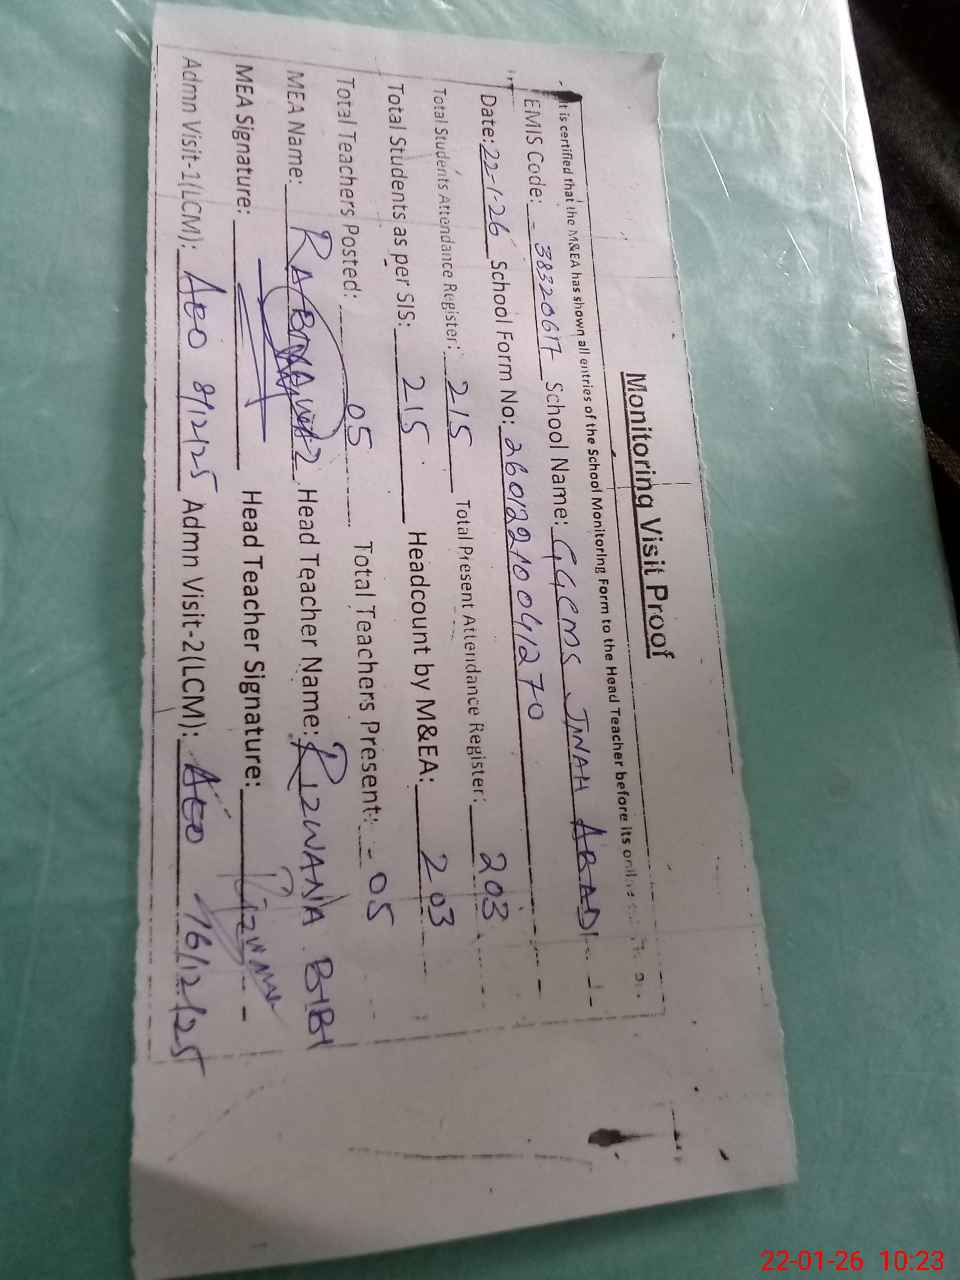 Monitoring Visit Proof
It is certified that the M&EA has shown all entries of the School Monitoring Form to the Head Teacher before its online
EMIS Code: - 38320617 School Name: GGCMS JNAH ABADI
Date: 22-1-26 School Form No: 26012210041270
Total Students Attendance Register: 215 Total Present Attendance Register: 203
Total Students as per SIS: 215 Headcount by M&EA: 203
Total Teachers Posted: 05 Total Teachers Present: - 05
MEA Name: Head Teacher Name: RIZWANA BIBI
MEA Signature: Head Teacher Signature: Rizwana
Admn Visit-1(LCM): AEO 8/12/25 Admn Visit-2(LCM): AEO 16/12/25
22-01-26 10:23